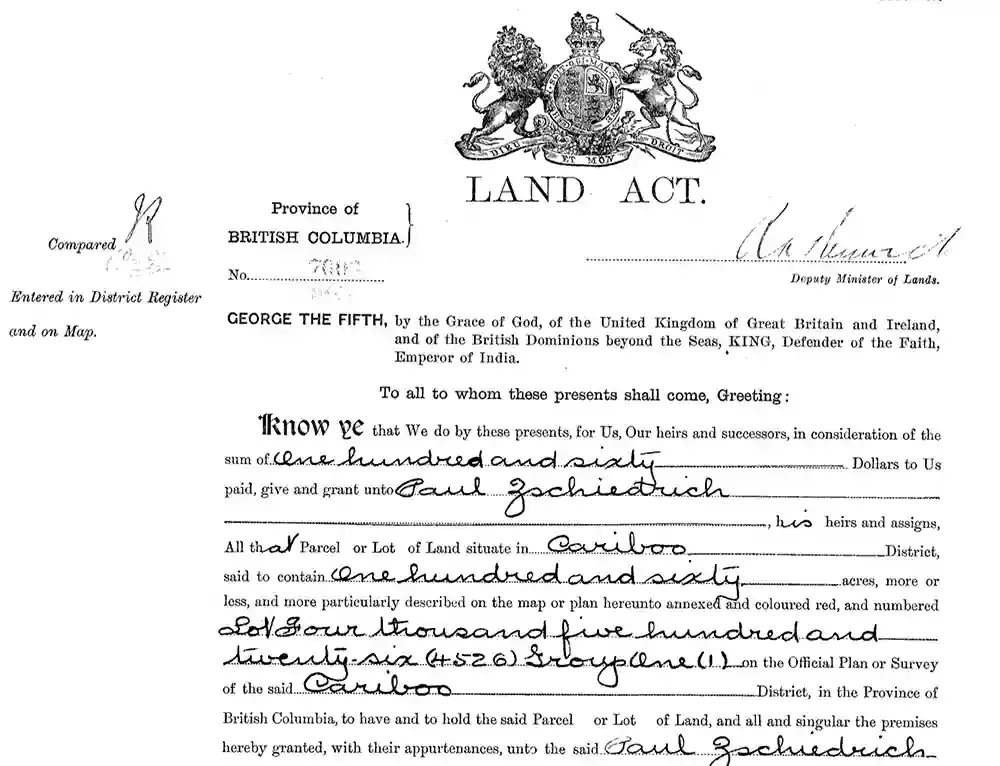 DIEU ET MON DROIT
LAND ACT.
Province of
BRITISH COLUMBIA.
Compared
No.
Deputy Minister of Lands.
Entered in District Register
and on Map.
GEORGE THE FIFTH, by the Grace of God, of the United Kingdom of Great Britain and Ireland,
and of the British Dominions beyond the Seas, KING, Defender of the Faith,
Emperor of India.
To all to whom these presents shall come, Greeting:
Know ye that We do by these presents, for Us, Our heirs and successors, in consideration of the
sum of One hundred and sixty Dollars to Us
paid, give and grant unto Paul Zschiedrich
, his heirs and assigns,
All that Parcel or Lot of Land situate in Cariboo District,
said to contain One hundred and sixty acres, more or
less, and more particularly described on the map or plan hereunto annexed and coloured red, and numbered
Lot Four thousand five hundred and
twenty-six (4526) Group One (1) on the Official Plan or Survey
of the said Cariboo District, in the Province of
British Columbia, to have and to hold the said Parcel or Lot of Land, and all and singular the premises
hereby granted, with their appurtenances, unto the said Paul Zschiedrich